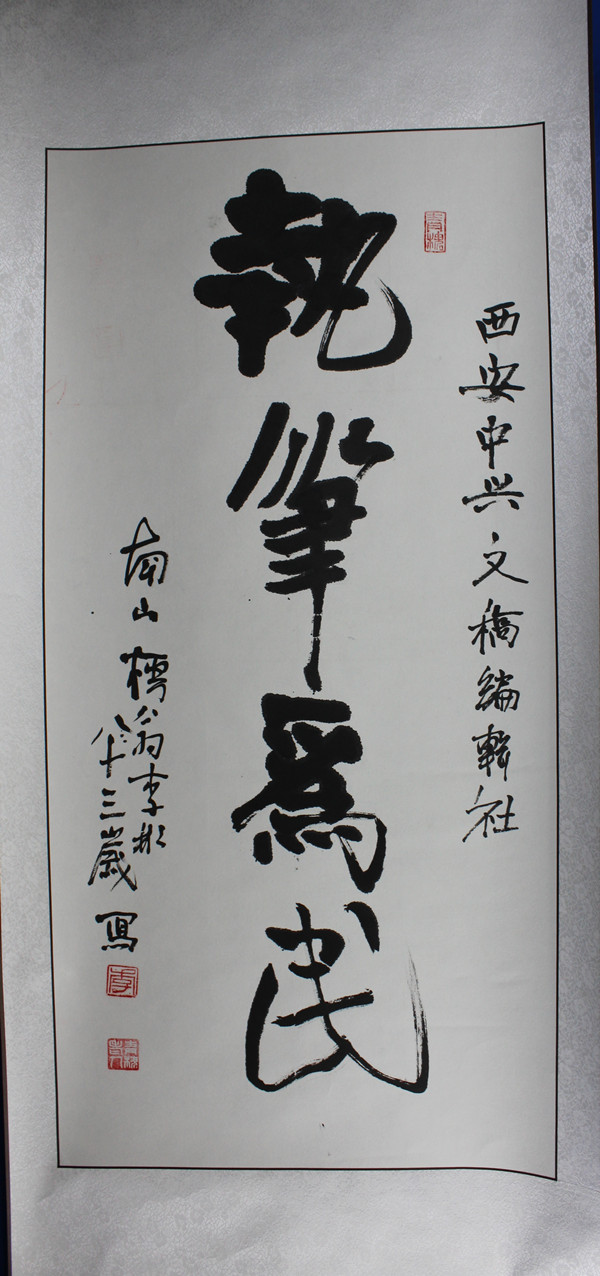 西安中兴文稿编辑社
執筆爲民
南山樗翁李彬
八十三歲寫